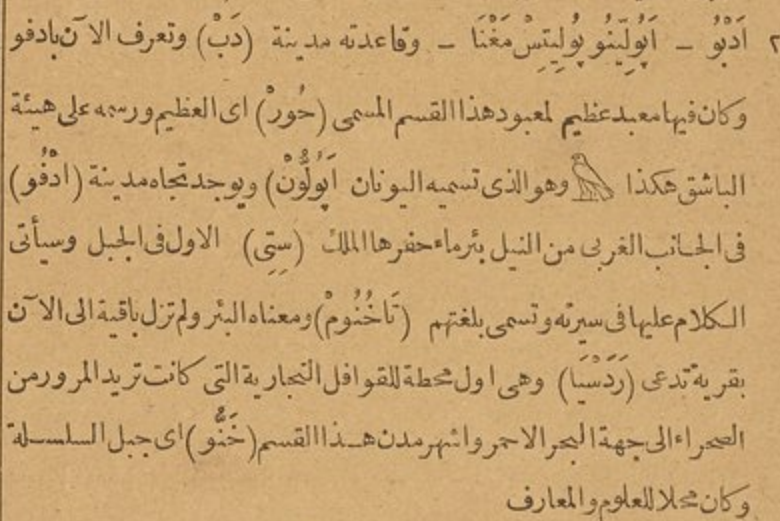 ٢ اَدْبُو ــ اَپُولِّينُو پُولِيتِسْ مَغْنَا ــ وقاعدته مدينة (دَبْ) وتعرف الآن بادفو
وكان فيها معبد عظيم لمعبود هذا القسم المسمى (حُورْ) اى العظيم ورسمه على هيئة
الباشق هكذا 𓅃 وهو الذى تسميه اليونان اَپُولُّونْ) ويوجد تجاه مدينة (ادْفُو)
فى الجانب الغربى من النيل بئر ماء حفرها الملك (سِتِى) الاول فى الجبل وسيأتى
الكلام عليها فى سيرته وتسمى بلغتهم (تَاخُنُومْ) ومعناه البئر ولم تزل باقية الى الآن
بقرية تدعى (رَدَسْيَا) وهى اول محطة للقوافل التجارية التى كانت تريد المرور من
الصحراء الى جهة البحر الاحمر واشهر مدن هذا القسم (خَنُّو) اى جبل السلسلة
وكان محلا للعلوم والمعارف